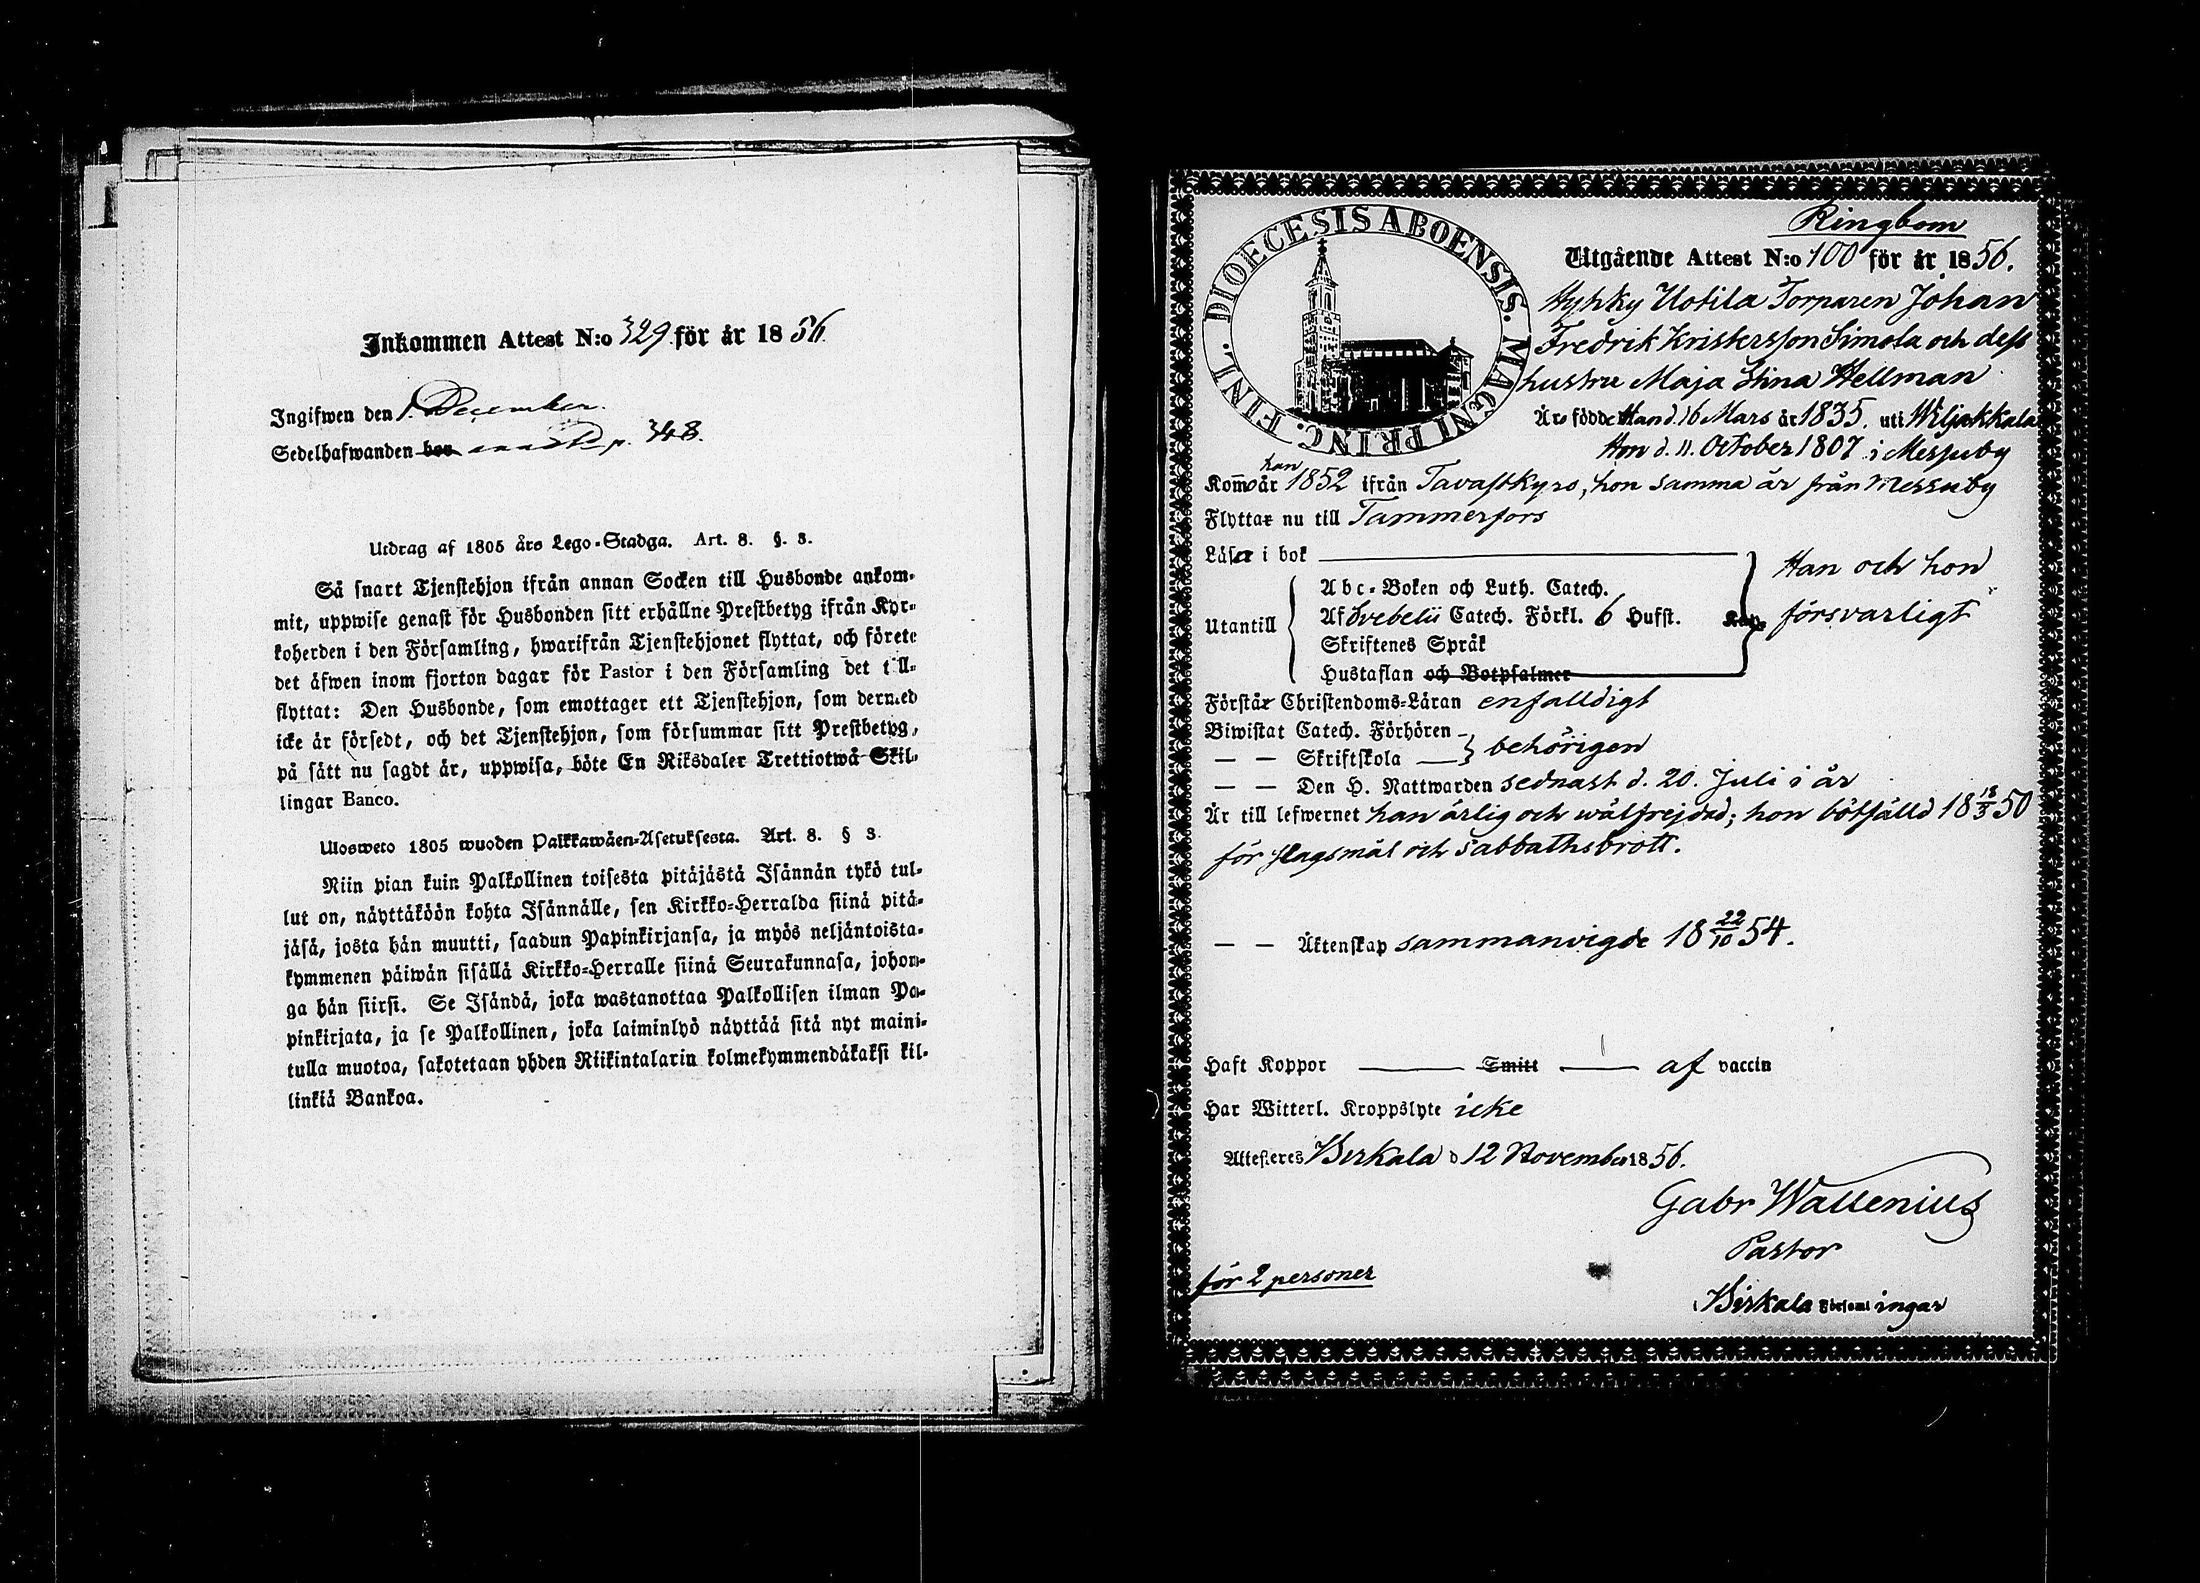 Inkommen Attest N:o 329 för år 1856.
Ingifwen den 1. December.
Sedelhafwanden bor p. 348.
Utdrag af 1805 års Lego-Stadga. Art. 8. §. 3.
Så snart Tjenstehjon ifrån annan Socken till Husbonde ankom-
mit, uppwise genast för Husbonden sitt erhållne Prestbetyg ifrån Kyr-
koherden i den Församling, hwarifrån Tjenstehjonet flyttat, och förete
det äfwen inom fjorton dagar för Pastor i den Församling det till-
flyttat: Den Husbonde, som emottager ett Tjenstehjon, som dermed
icke är försedt, och det Tjenstehjon, som försummar sitt Prestbetyg,
på sätt nu sagdt är, uppwisa, böte En Riksdaler Trettiotwå Skil-
lingar Banco.
Ulosweto 1805 wuoden Palkkawäen-Asetuksesta. Art. 8. § 3.
Niin pian kuin Palkollinen toisesta pitäjästä Isännän tykö tul-
lut on, näyttäköön kohta Isännälle, sen Kirkko-Herralda siinä pitä-
jäsä, josta hän muutti, saadun Papinkirjansa, ja myös neljäntoista-
kymmenen päiwän sisällä Kirkko-Herralle siinä Seurakunnasa, johon-
ga hän siirsi. Se Isändä, joka wastanottaa Palkollisen ilman Pa-
pinkirjata, ja se Palkollinen, joka laiminlyö näyttää sitä nyt maini-
tulla muotoa, sakotetaan yhden Riikintalarin kolmekymmendäkaksi kil-
linkiä Bankoa.
DIOECESIS ABOENSIS. MAGNI PRINC. FINL.
Ringbom
Utgående Attest N:o 100 för år 1856.
Hyhky Uotila Torparen Johan
Fredrik Kristersson Simola och dess
hustru Maja Stina Hellman
Äro födde Han d. 16 Mars år 1835. uti Wiljakkala
Hon d. 11. October 1807 i Messuby
Kommo år han 1852 ifrån Tavastkyro, hon samma år från Messuby
Flyttar nu till Tammerfors
Läser i bok
Abc-Boken och Luth. Catech.
Utantill Af Svebelii Catech. Förkl. 6 Hufst. Kap.
Skriftenes Språk
Hustaflan och Botpsalmer
Han och hon
försvarligt
Förstår Christendoms-Läran enfalldigt
Biwistat Catech. Förhören
— — Skriftskola — behörigen
— — Den H. Nattwarden sednast d. 20. Juli i år
Är till lefwernet han ärlig och wälfrejdad; hon bötfälld 18 18/3 50
för slagsmål och sabbathsbrott.
— — Äktenskap sammanvigde 18 22/10 54.
Haft Koppor — Smitt — af vaccin
Har Witterl. Kroppslyte icke
Attesteres Birkala d 12 November 1856.
Gabr Wallenius
Pastor
för 2 personer
i Birkala Församlingar